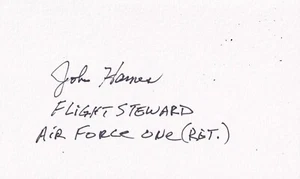 John Hames
FLIGHT STEWARD
AIR FORCE ONE (RET.)